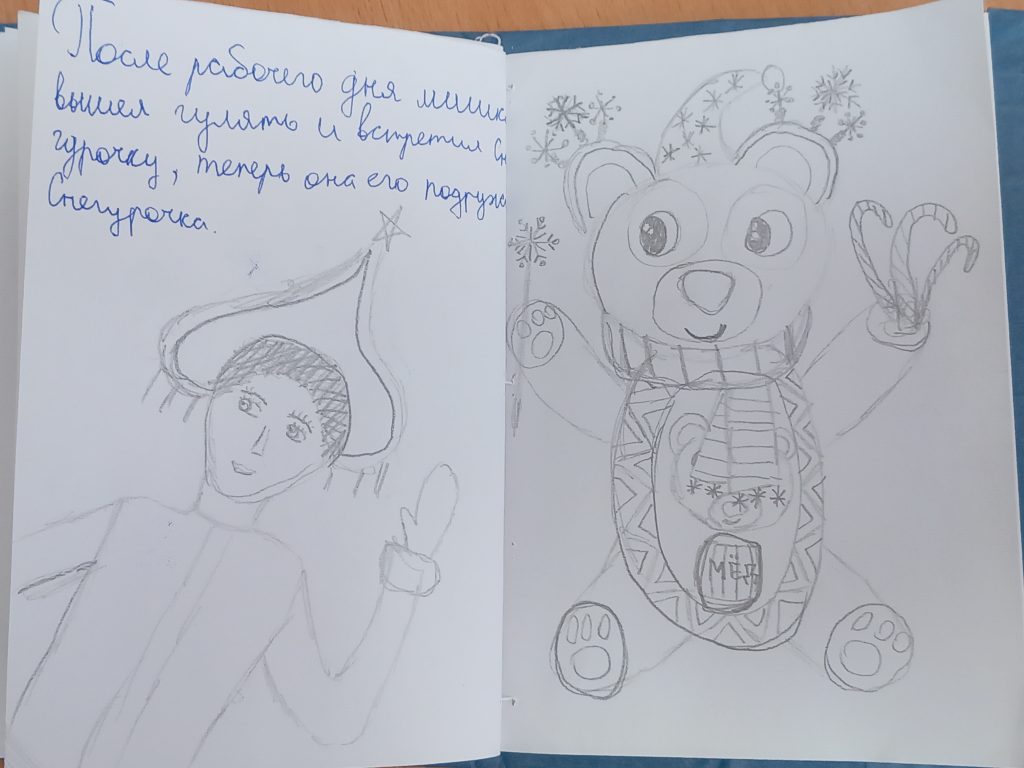 После рабочего дня мишк
вышел гулять и встретил Сн
гурочку, теперь она его подруж
Снегурочка.
МЁД